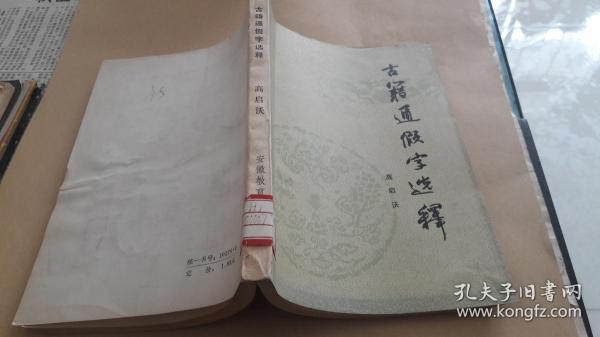 古籍通假字选释
高启沃
古籍通假字选释
高启沃
安徽教育
统一书号：
定价：
孔夫子旧书网
www.kongfz.com